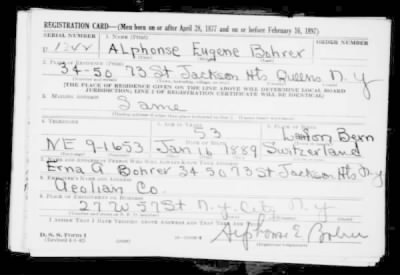 REGISTRATION CARD—(Men born on or after April 28, 1877 and on or before February 16, 1897)
SERIAL NUMBER 1. NAME (Print) ORDER NUMBER
U Alphonse Eugene Bohrer
2. PLACE OF RESIDENCE (Print)
34-50 73 St Jackson Hts Queens N.Y
[THE PLACE OF RESIDENCE GIVEN ON THE LINE ABOVE WILL DETERMINE LOCAL BOARD
JURISDICTION; LINE 2 OF REGISTRATION CERTIFICATE WILL BE IDENTICAL]
3. MAILING ADDRESS
Same
4. TELEPHONE 5. AGE IN YEARS 6. PLACE OF BIRTH
53 Canton Bern
DATE OF BIRTH
NE 9-1653 Jan 16 1889 Switzerland
7. NAME AND ADDRESS OF PERSON WHO WILL ALWAYS KNOW YOUR ADDRESS
Erna A Bohrer 34 50 73 St Jackson Hts N.Y
8. EMPLOYER'S NAME AND ADDRESS
Aeolian Co.
9. PLACE OF EMPLOYMENT OR BUSINESS
27 W 57 St N.Y. City N.Y
I AFFIRM THAT I HAVE VERIFIED ABOVE ANSWERS AND THAT THEY ARE TRUE.
D. S. S. Form 1
(Revised 4-1-42)
Alphonse E Bohrer